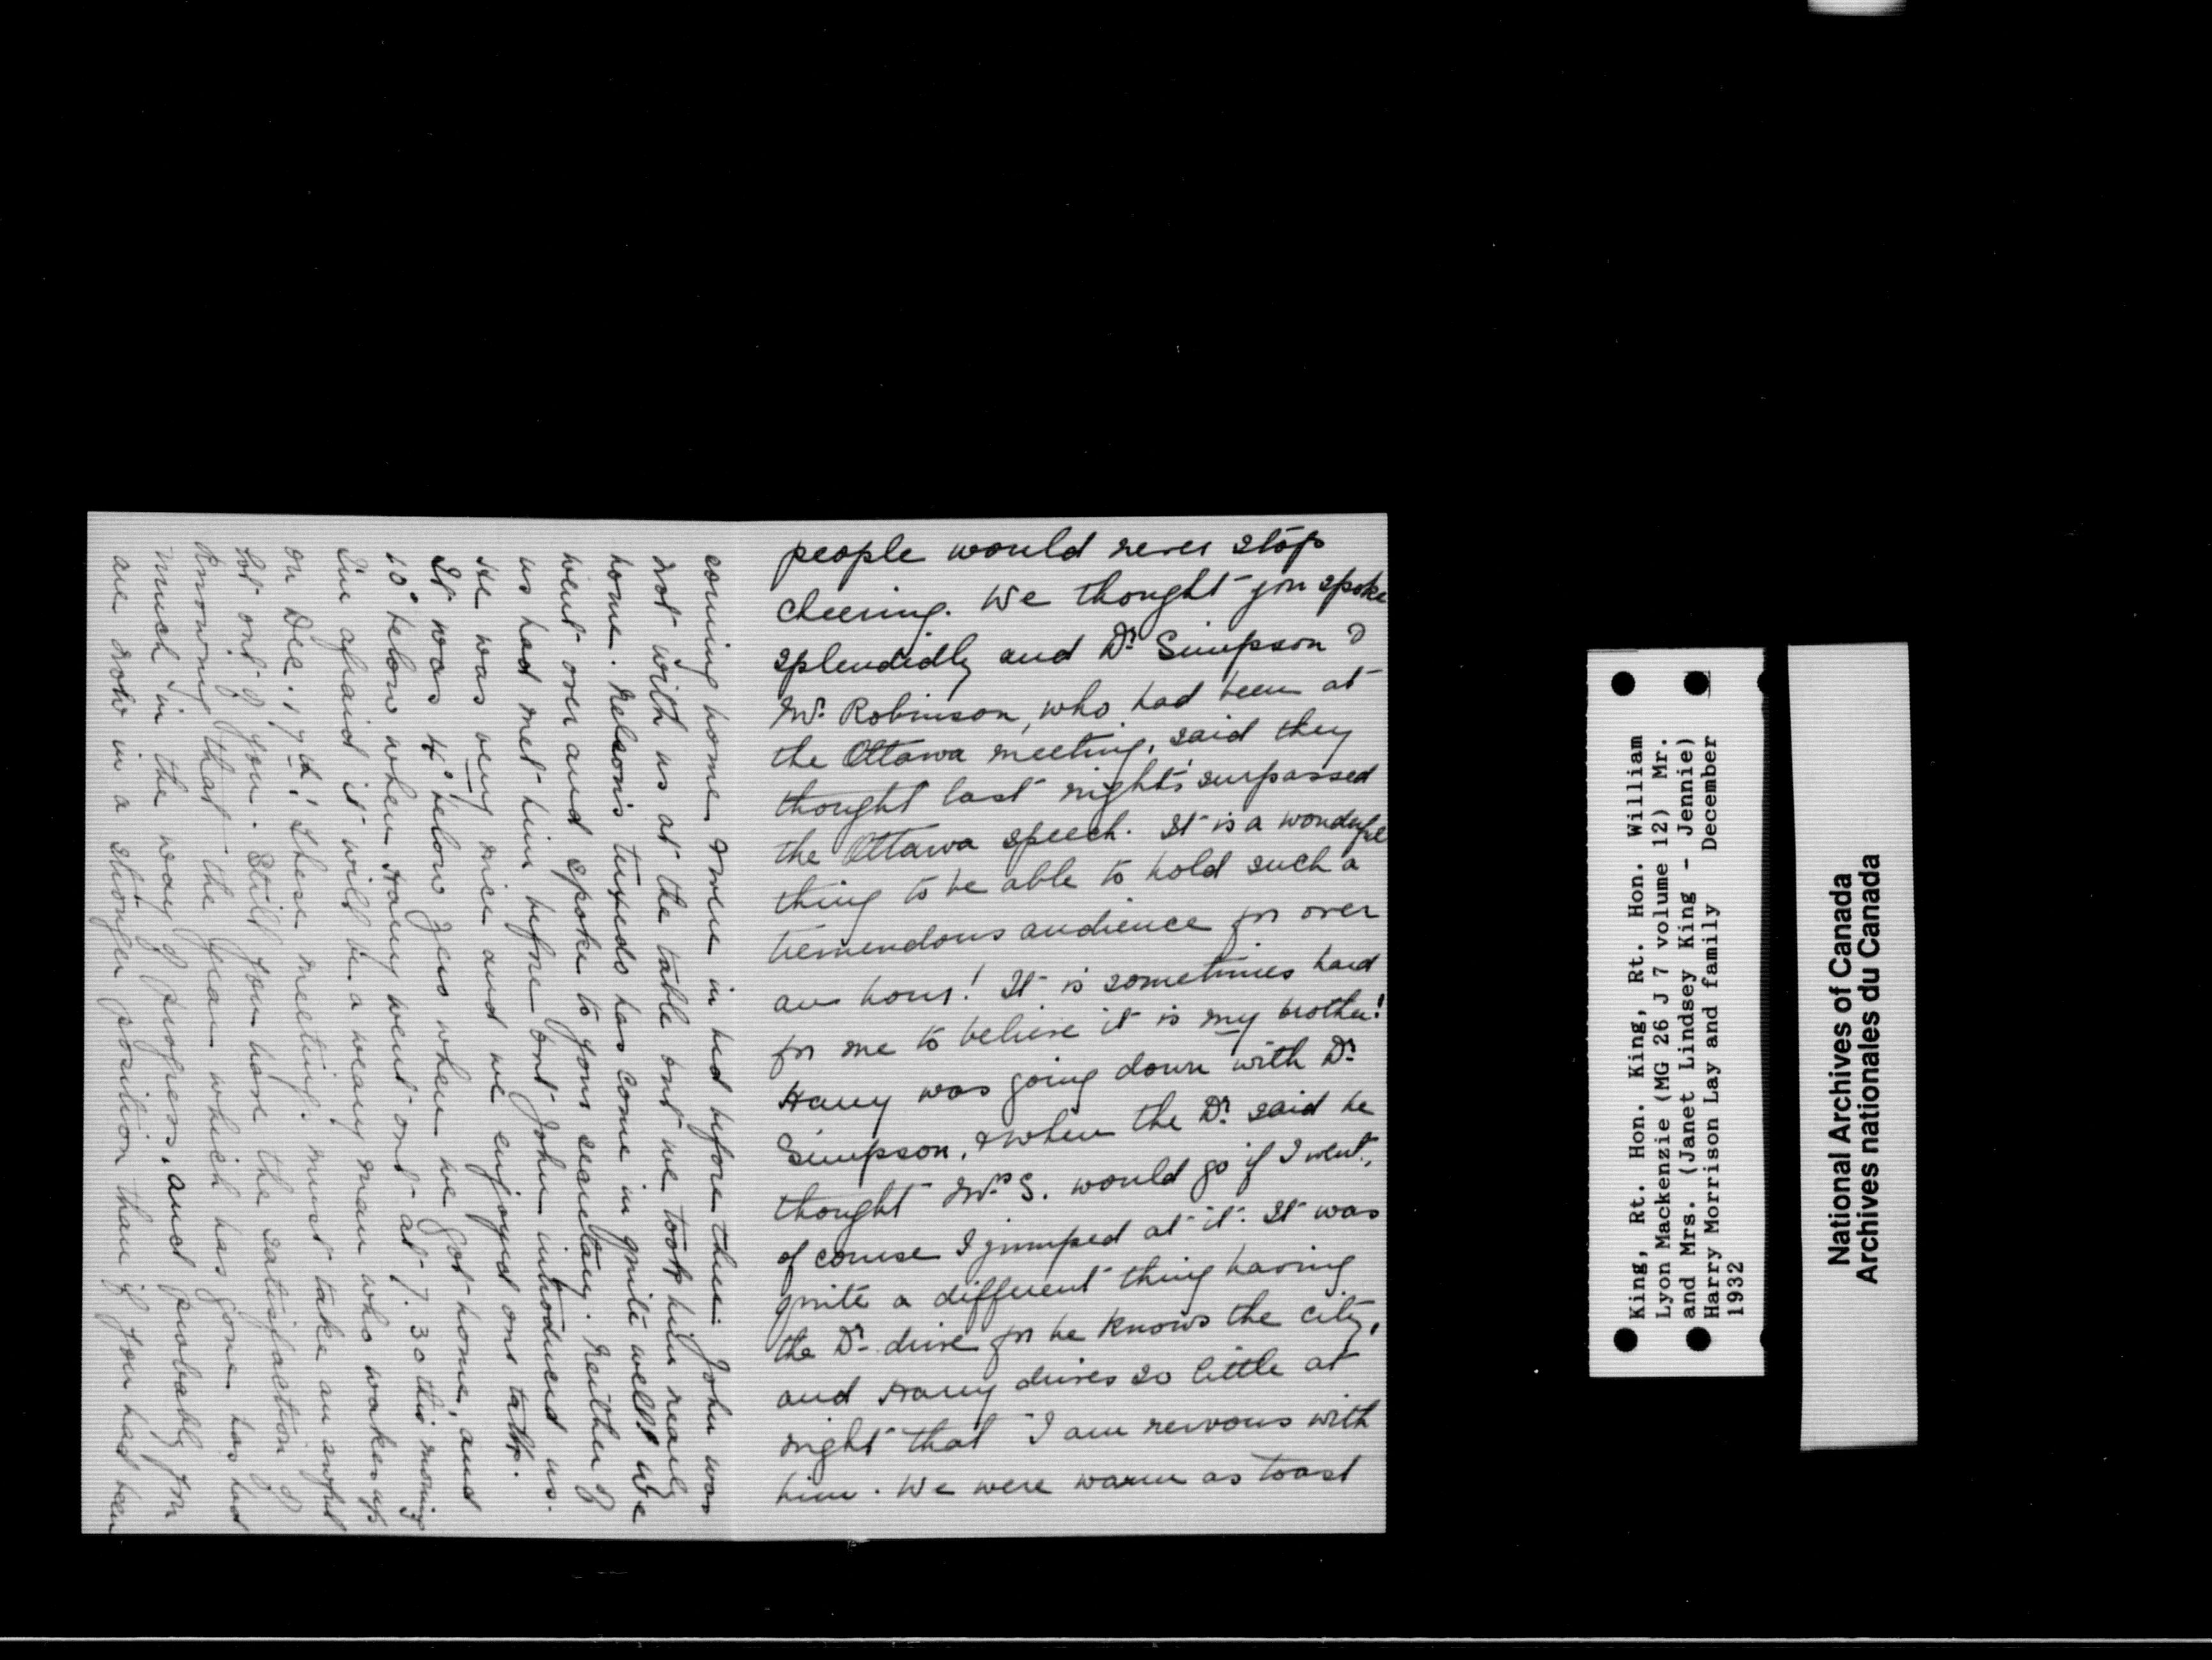 people would never stop
cheering. We thought you spoke
splendidly and Dr. Simpson &
Mr. Robinson, who had been at
the Ottawa meeting, said they
thought last night's surpassed
the Ottawa speech. It is a wonderful
thing to be able to hold such a
tremendous audience for over
an hour! It is sometimes hard
for me to believe it is my brother!
Harry was going down with Dr.
Simpson, & when the Dr. said he
thought Mrs. S. would go if I went,
of course I jumped at it. It was
quite a different thing having
the Dr. drive for he knows the city,
and Harry drives so little at
night that I am nervous with
him. We were warm as toast
coming home & were in bed before three. John was
not with us at the table but we took him
home. Nelson's tuxedo has come in quite well! We
went over and spoke to your secretary. Neither of
us had met him before but John introduced us.
He was very nice and we enjoyed our talk.
It was 4° below zero when we got home, and
10° below when Harry went out at 7.30 this morning
I'm afraid it will be a weary man who wakes up
on Dec. 17th! These meetings must take an awful
lot out of you. Still you have the satisfaction of
knowing that the year which has gone has had
much in the way of progress, and probably you
are now in a stronger position than if you had been
King, Rt. Hon. King, Rt. Hon. William
Lyon Mackenzie (MG 26 J 7 volume 12) Mr.
and Mrs. (Janet Lindsey King - Jennie)
Harry Morrison Lay and family December
1932
National Archives of Canada
Archives nationales du Canada